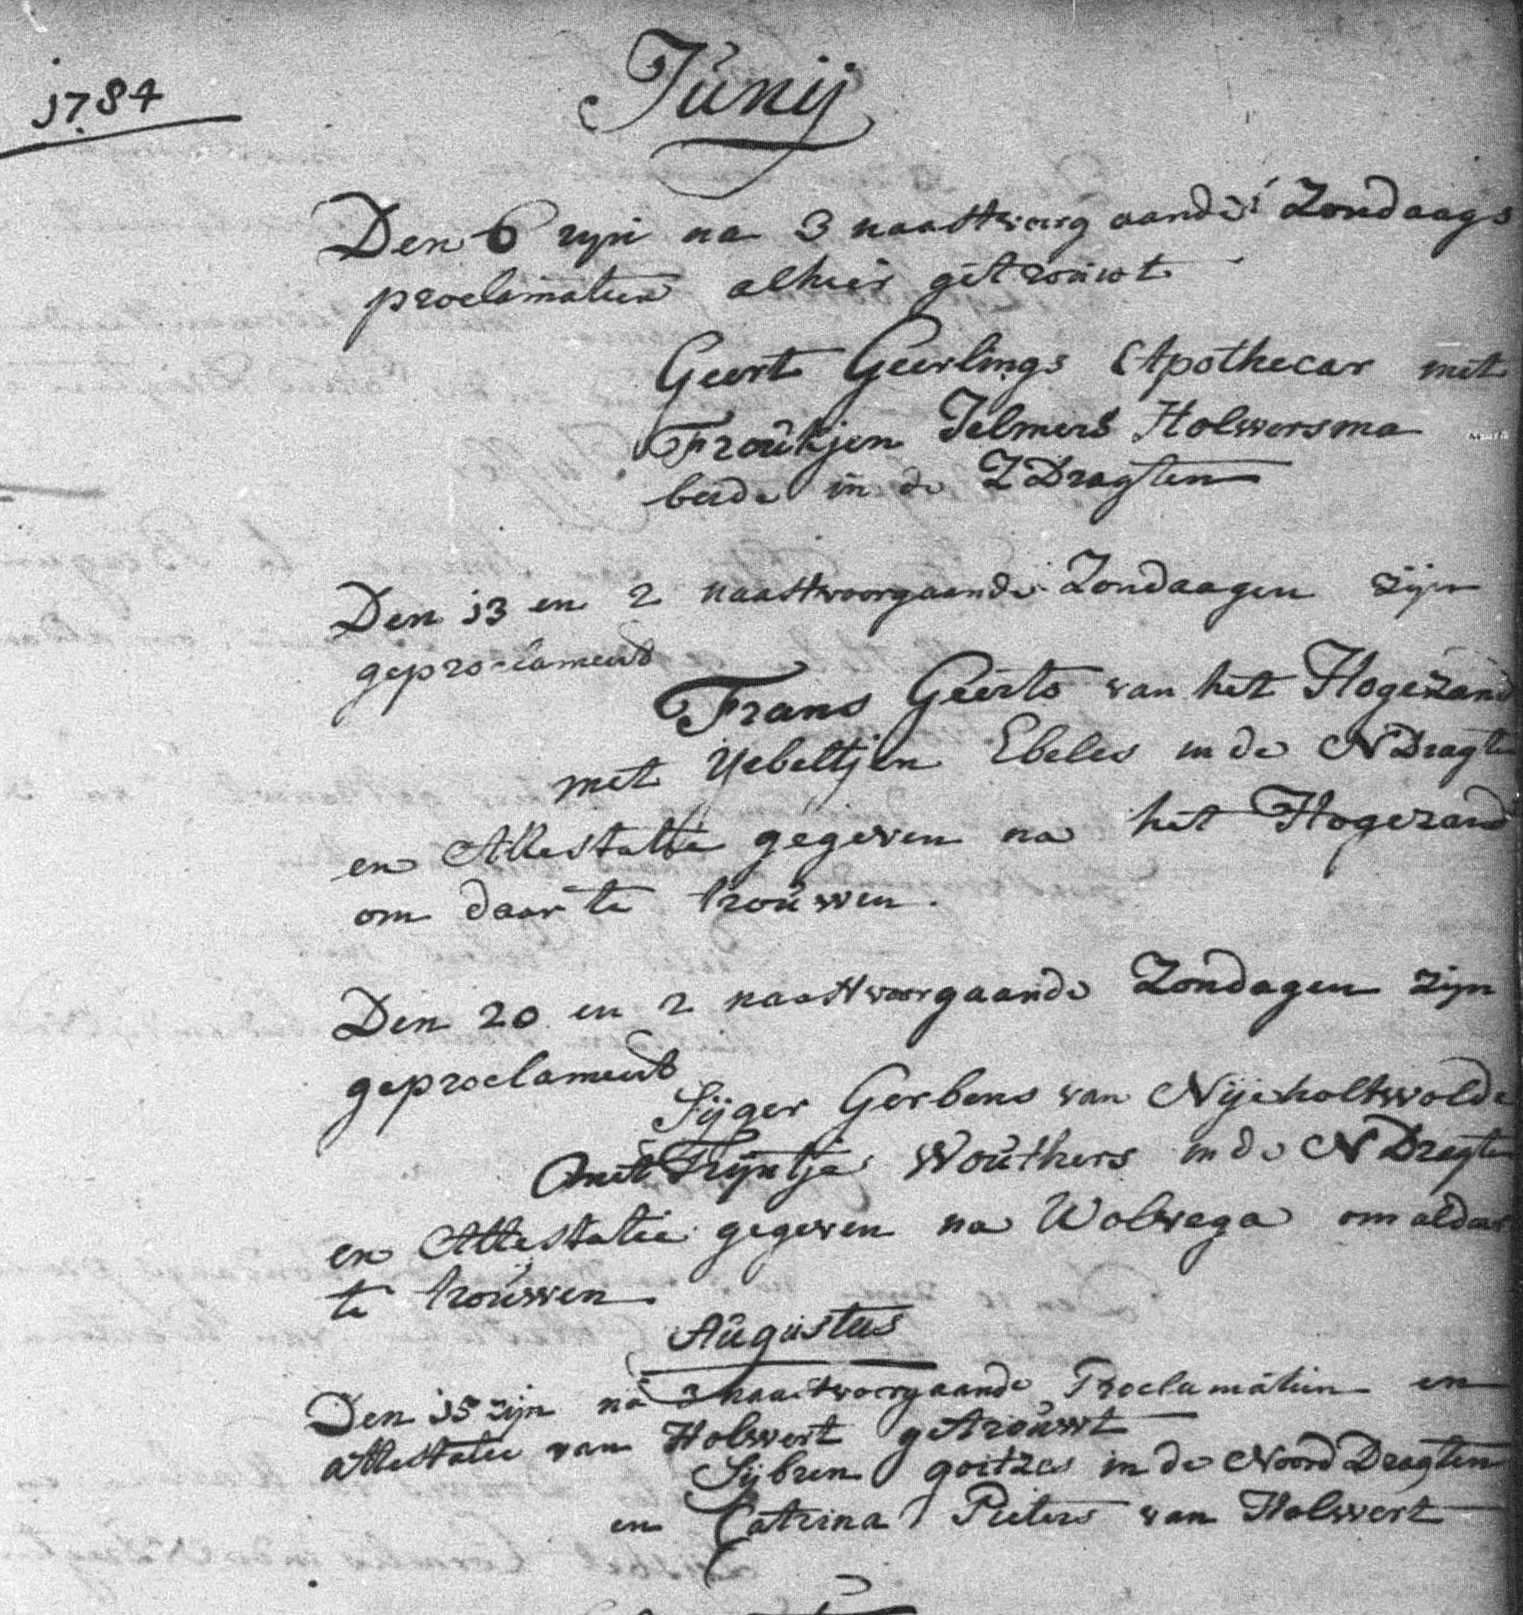 1784
Junij
Den 6 zijn na 3 naastvoorg aande Zondaags
proclamatien alhier getrouwt
Geert Geerlings Apothecar met
Froukjen Jelmers Holwersma
beide in de Z Dragten
Den 13 en 2 naastvoorgaande Zondaagen zijn
geproclameerd
Frans Geerts van het Hogezand
met Yebeltjen Ebeles in de N Dragte
en Attestatie gegeven na het Hogezand
om daar te trouwen.
Den 20 en 2 naastvoorgaande Zondagen zijn
geproclameerd
Sijger Gerbens van Nijeholtwolde
met Trijntje Wouthers in de N Dragte
en Attestatie gegeven na Wolvega om aldaar
te trouwen.
Augustus
Den 15 zijn na 3 naastvoorgaande Proclamatien en
attestatie van Holwert getrouwt
Sijbren goitzes in de Noord Dragten
en Catrina Pieters van Holwert